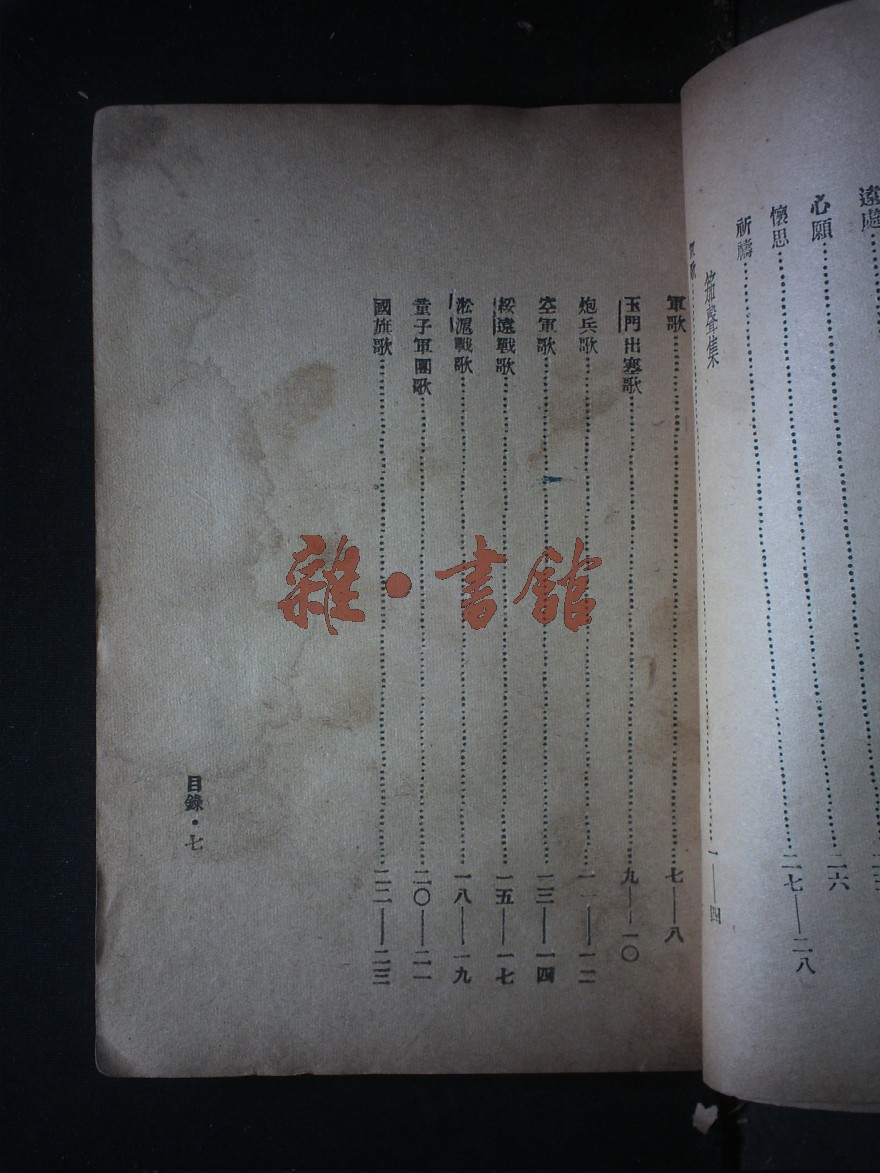 遠處
心願……二六
懷思……二七——二八
祈禱
笳聲集
一——四
軍歌……七——八
玉門出塞歌……九——一〇
炮兵歌……一一——一二
空軍歌……一三——一四
綏遠戰歌……一五——一七
淞滬戰歌……一八——一九
童子軍團歌……二〇——二一
國旗歌……二二——二三
目錄・七
雜・書館